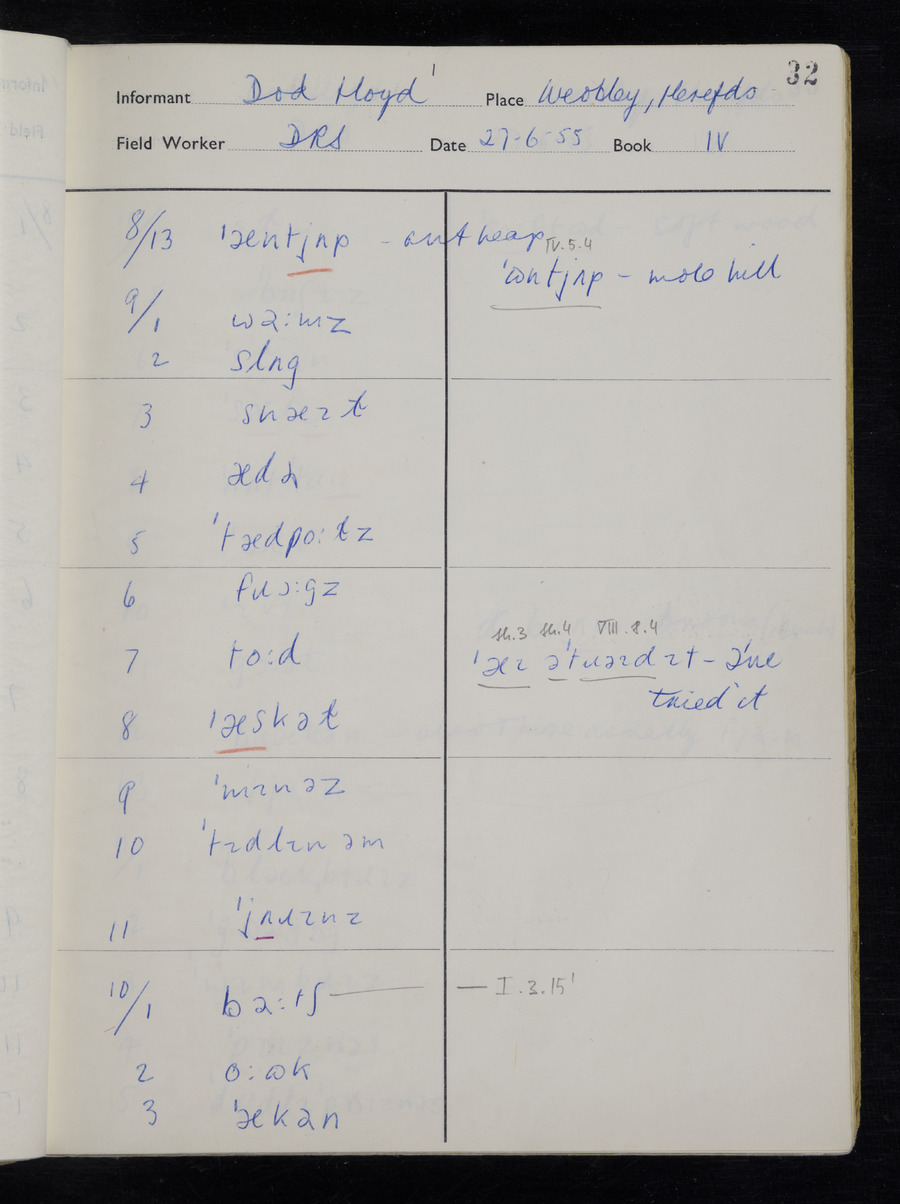 32
Informant Dod Lloyd Place Weobley, Herefds
Field Worker DRS Date 27-6-55 Book IV
8/13 ˈæntjʌp - ant heap IV.5.4
ˈɷntjʌp - mole hill
9/1 wəːmz
2 slʌg
3 snæɪt
4 ædə
5 ˈtædpoːɫz
6 fɹɔːgz
7 toːd
sh.3 sh.4 VIII.8.4
ˈæɪ əˈtɹəɪd ɪt - I've
tried it
8 ˈæskəɫ
9 ˈmɪnəz
10 ˈtɪdlɪnəm
11 ˈjʌɹɪnz
10/1 bəːtʃ — I.3.15'
2 oːɷk
3 ˈækən